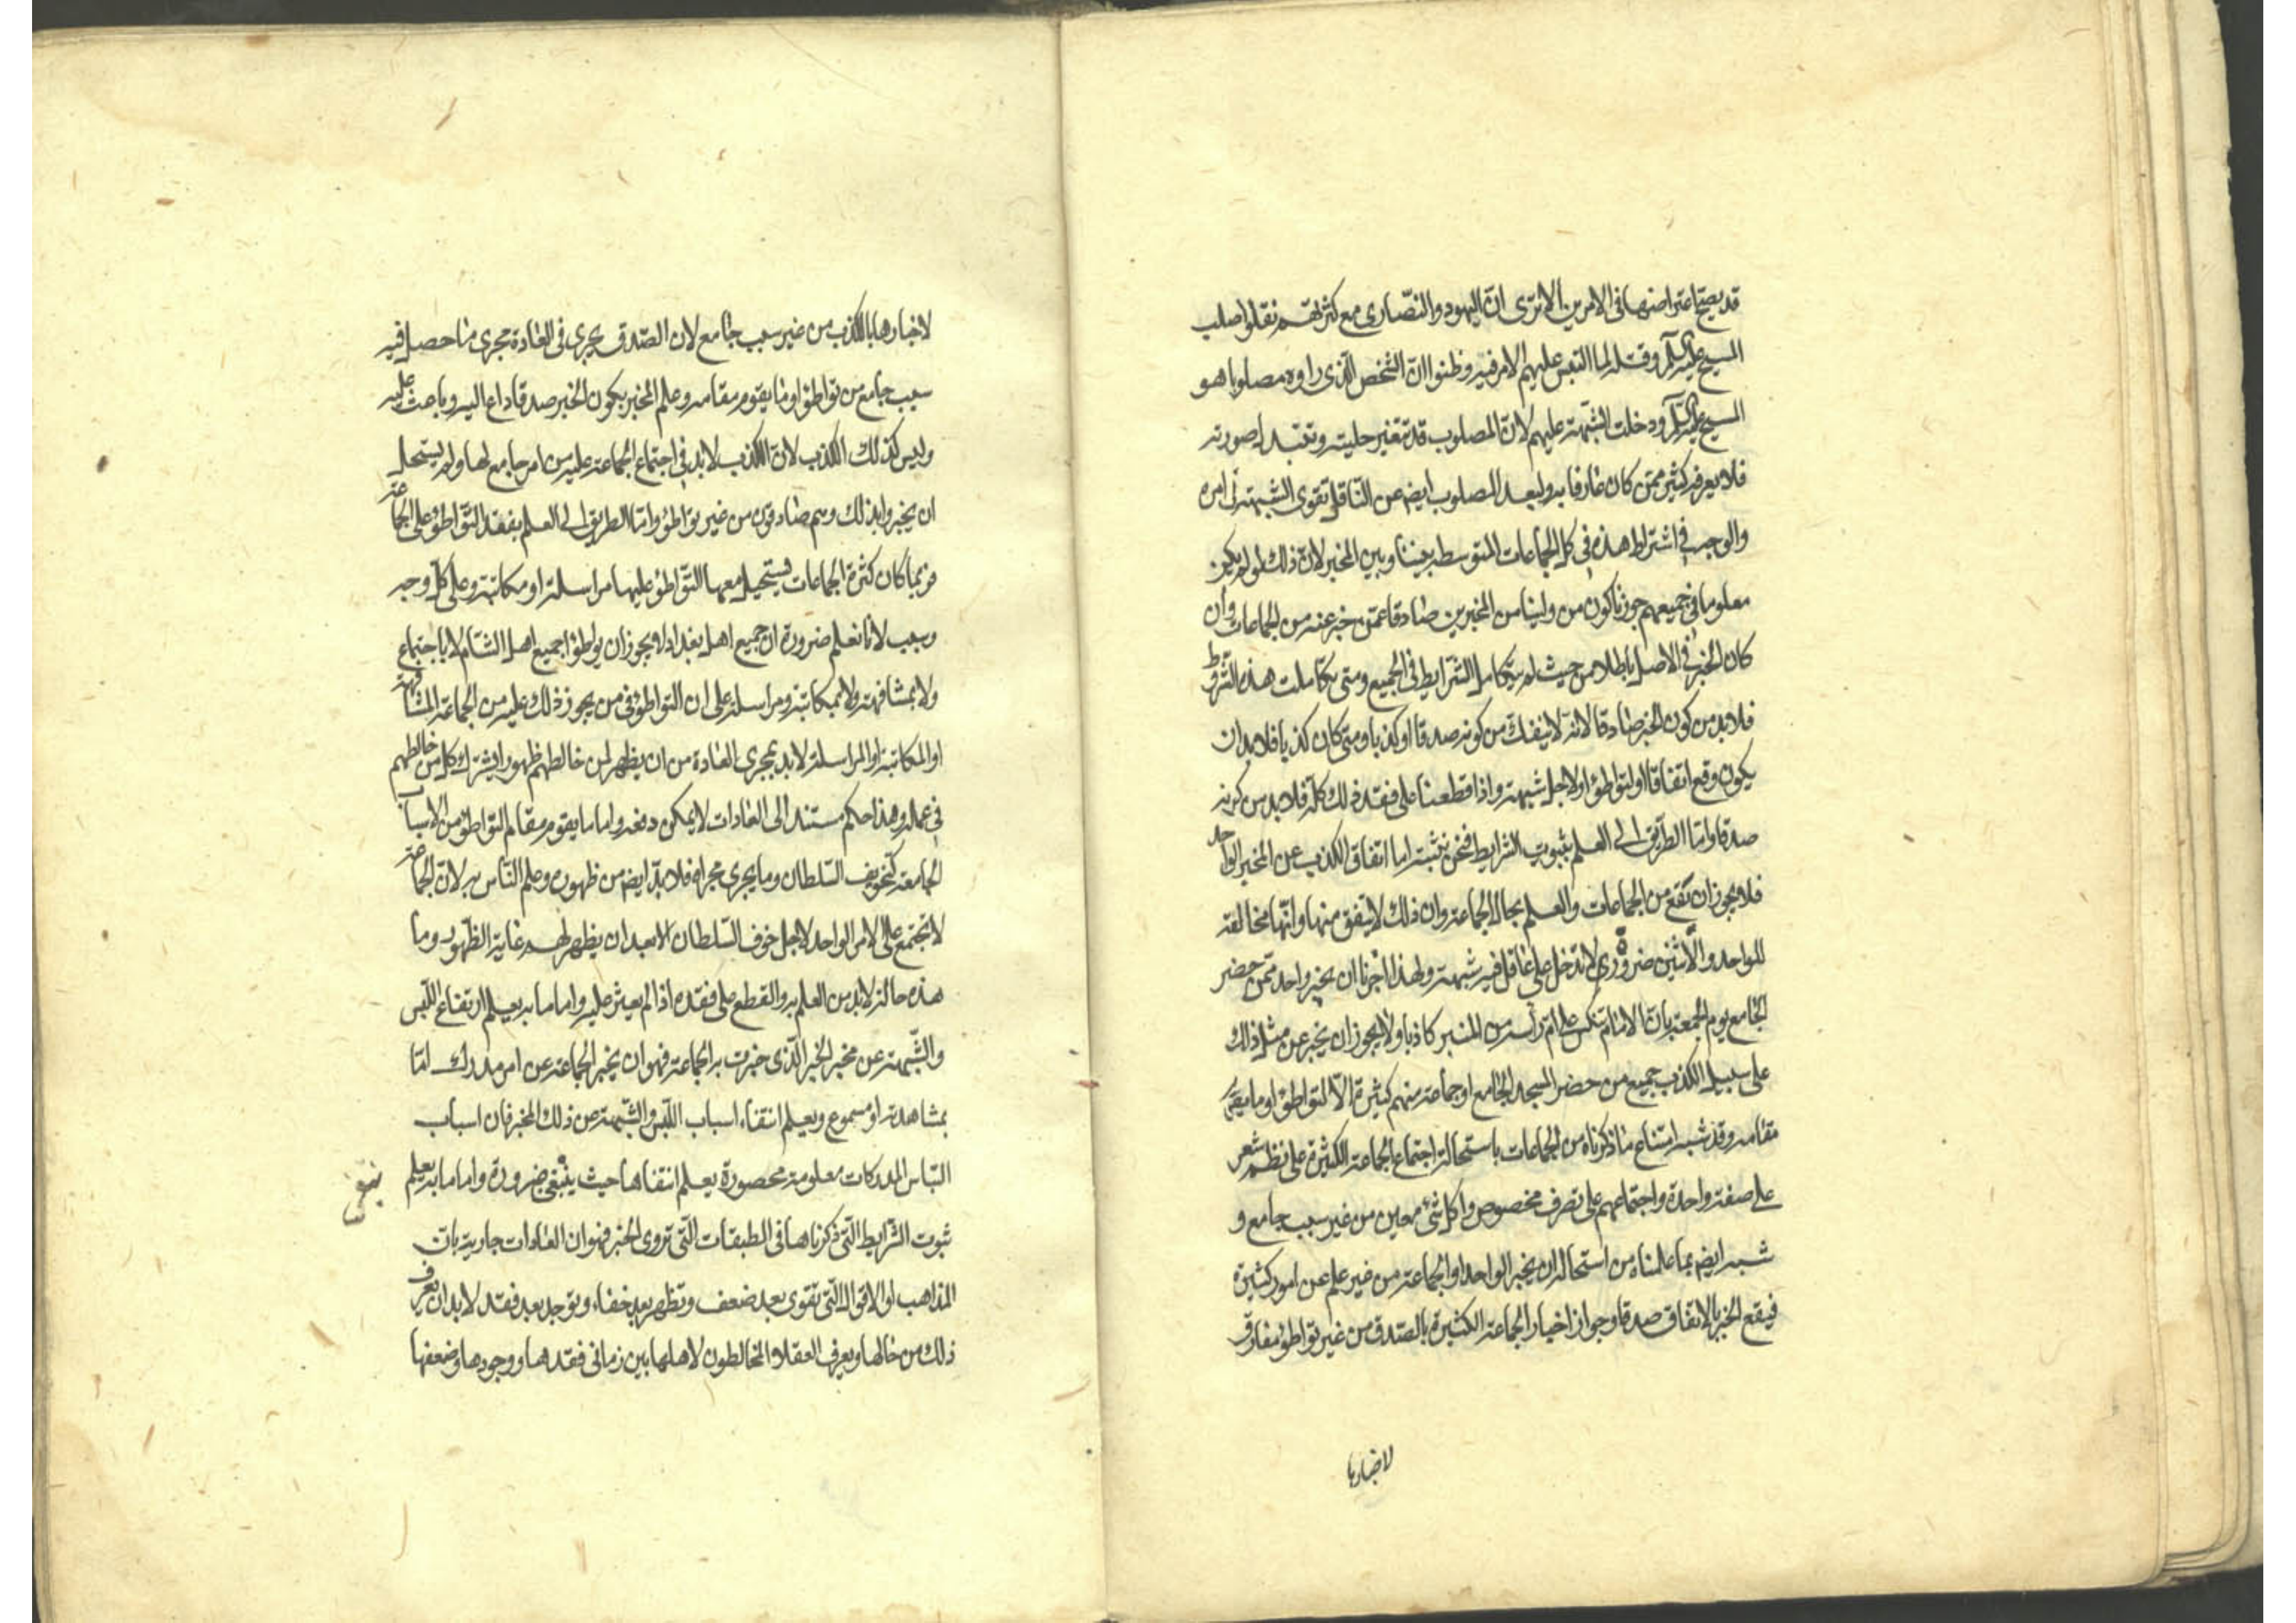 قد يصح اعتراضها في الامرين ألا ترى انّ اليهود والنّصارى مع كثرتهم نقلوا صلب
المسيح عليه السلام وقتله لما التبس عليهم الامر فيه وظنوا ان الشخص الّذى راوه مصلوبا هو
المسيح عليه السلام ودخلت الشّبهة عليهم لانّ المصلوب قد تتغير حليته وتتبدل صورته
فلا يعرفه كثير ممّن كان عارفا به ولبعد المصلوب ايضه عن النّاقل تقوى الشبهة فى امره
والوجه في اشتراط هذه في كل الجماعات المتوسطة بيننا وبين المخبر لانّ ذلك لو لم يكن
معلوما في جميعهم جوزنا كون من ولينا من المخبرين صادقا عمّن خبر عنه من الجماعات وأن
كان الخبر في الاصل باطلا من حيث لم تتكامل الشرايط في الجميع ومتى تكاملت هذه الشروط
فلا بد من كون الخبر صادقا لانّه لا ينفك من كونه صدقا او كذبا ومتى كان كذبا فلا بد ان
يكون وقع اتفاقا او لتواطؤ او لاجل شبهة واذا قطعنا على فقد ذلك كلّه فلا بد من كونه
صدقا وامّا الطريق الى العلم بثبوت الشرايط فنحن نبيّنه اما اتفاق الكذب عن المخبر الواحد
فلا يجوز ان يقع من الجماعات والعلم بحال الجماعة وان ذلك لا يتفق منها وانّها مخالفة
للواحد والاثنين ضروري لا تدخل على عاقل فيه شبهة ولهذا اجزنا ان يخبر واحد ممّن حضر
الجامع يوم الجمعة بانّ الامام تنكس على ام رأسه من المنبر كاذبا ولا يجوز ان يخبر عن مثل ذلك
على سبيل الكذب جميع من حضر المسجد الجامع او جماعة منهم كثيرة الاّ لتواطؤ او ما يقوم
مقامه وقد شبه امتناع ما ذكرناه من الجماعات باستحالة اجتماع الجماعة الكثيرة على نظم شعر
على صفة واحدة واجتماعهم على تصرف مخصوص واكل شئ معين من غير سبب جامع و
شبه ايضه بما علمناه من استحالة ان يخبر الواحد او الجماعة من غير علم عن امور كثيرة
فيقع الخبر بالاتفاق صدقا وجواز اخبار الجماعة الكثيرة بالصّدق من غير تواطؤ مفارق
لاخبارها
لاخبارها بالكذب من غير سبب جامع لان الصّدق يجرى فى العادة مجرى ما حصل فيه
سبب جامع من تواطؤ او ما يقوم مقامه وعلم المخبر بكون الخبر صدقا داع اليه وباعث عليه
وليس كذلك الكذب لانّ الكذب لا بد في اجتماع الجماعة عليه من امر جامع لها ولم يستحل
ان يخبروا بذلك وهم صادقون من غير تواطؤ وامّا الطريق الى العلم بفقد التّواطؤ على الجماعة
فربما كان كثرة الجماعات فيستحيل معها التّواطؤ عليها مراسلة او مكاتبة وعلى كل وجه
وسبب لانا نعلم ضرورة ان جميع اهل بغداد لا يجوز ان يواطؤا جميع اهل الشام لا باجتماع
ولا بمشافهة ولا بمكاتبة ومراسلة على ان التواطؤ فى من يجوز ذلك عليه من الجماعة المشافهة
او المكاتبة او المراسلة لا بد بمجرى العادة من ان يظهر لمن خالطهم ظهورا يشترك كل من خالطهم
فى علمه وهذا حكم مستند الى العادات لا يمكن دفعه واما ما يقوم مقام التواطؤ من الاسباب
الجامعة كتخويف السّلطان وما يجرى مجراه فلا بدّ ايضه من ظهوره وعلم النّاس به لانّ الجماعة
لا تجتمع على الامر الواحد لاجل خوف السّلطان الا بعد ان يظهر لهم غاية الظهور وما
هذه حاله لا بد من العلم به والقطع على فقده اذا لم يعثر عليه واما ما به يعلم ارتفاع اللّبس
والشّبهة عن مخبر الخبر الّذى خبرت به الجماعة فهو ان يخبر الجماعة عن امر مدرك امّا
بمشاهدة او مسموع ويعلم انتفاء اسباب اللّبس والشّبهة عن ذلك المخبر فان اسباب
التباس المدركات معلومة محصورة يعلم انتفاها حيث ينتفى ضرورة واما ما به يعلم
ثبوت الشّرايط التّى ذكرناها فى الطبقات التّى تروى الخبر فهو ان العادات جارية بان
المذاهب او الاقوال التّى تقوى بعد ضعف وتظهر بعد خفاء وتوجد بعد فقد لا بد ان يعرف
ذلك من حالها ويعرف العقلاء المخالطون لاهلها بين زمانى فقدها ووجودها وضعفها